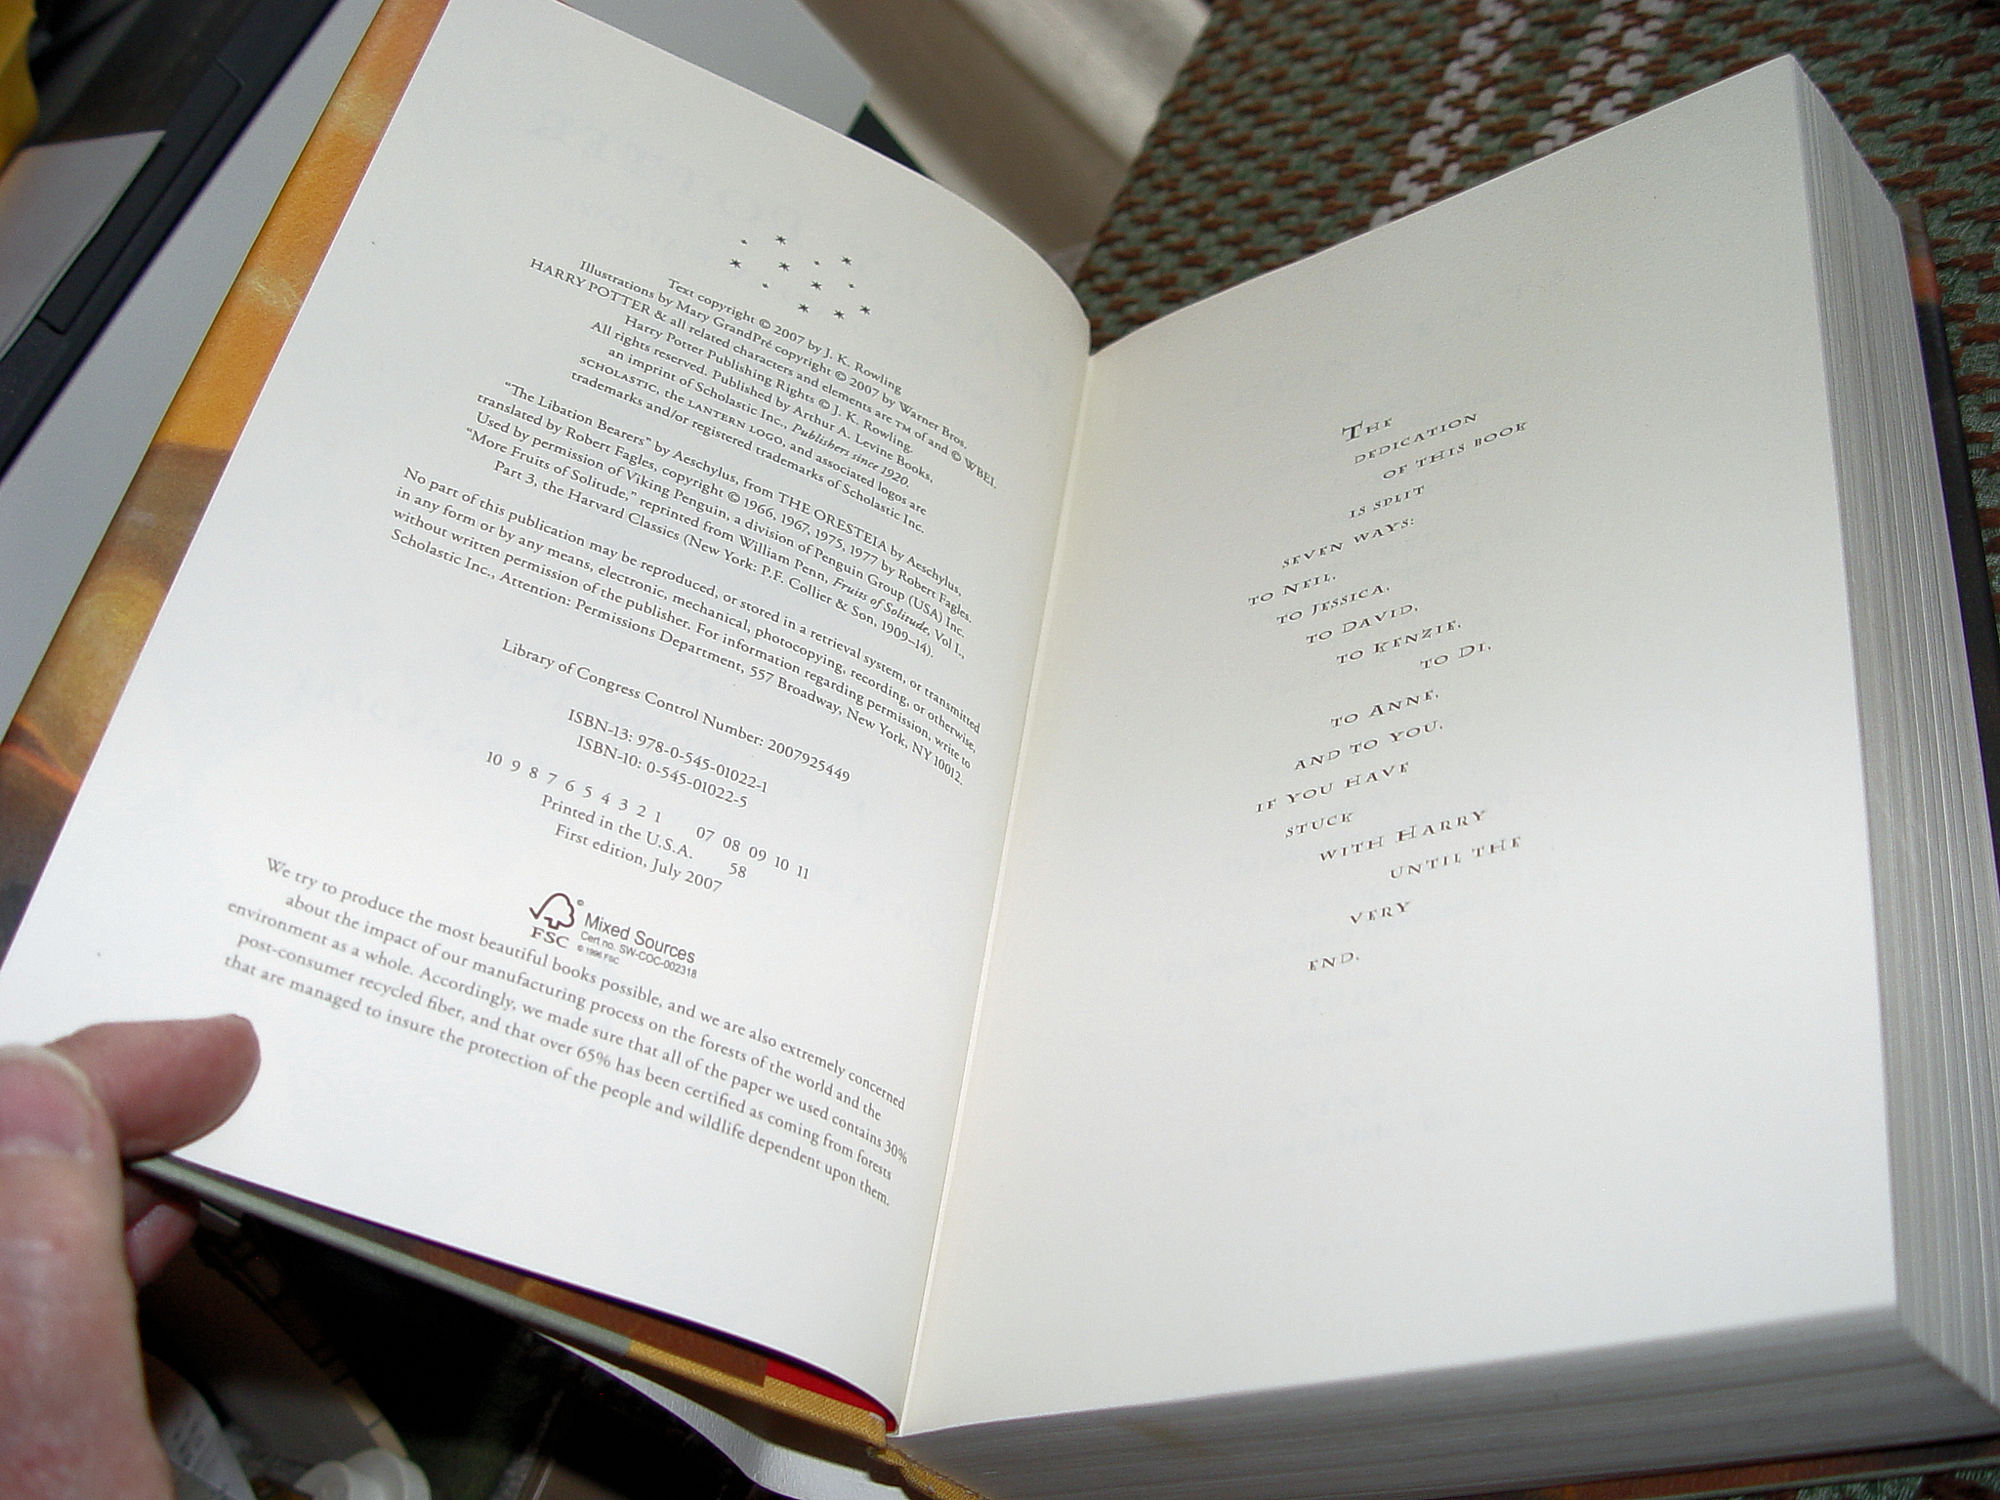 Text copyright © 2007 by J. K. Rowling
Illustrations by Mary GrandPré copyright © 2007 by Warner Bros.
HARRY POTTER & all related characters and elements are TM of and © WBEI.
Harry Potter Publishing Rights © J. K. Rowling.
All rights reserved. Published by Arthur A. Levine Books,
an imprint of Scholastic Inc., Publishers since 1920.
SCHOLASTIC, the LANTERN LOGO, and associated logos are
trademarks and/or registered trademarks of Scholastic Inc.
"The Libation Bearers" by Aeschylus, from THE ORESTEIA by Aeschylus,
translated by Robert Fagles, copyright © 1966, 1967, 1975, 1977 by Robert Fagles.
Used by permission of Viking Penguin, a division of Penguin Group (USA) Inc.
"More Fruits of Solitude," reprinted from William Penn, Fruits of Solitude, Vol I.,
Part 3, the Harvard Classics (New York: P.F. Collier & Son. 1909–14).
No part of this publication may be reproduced, or stored in a retrieval system, or transmitted
in any form or by any means, electronic, mechanical, photocopying, recording, or otherwise,
without written permission of the publisher. For information regarding permission, write to
Scholastic Inc., Attention: Permissions Department, 557 Broadway, New York, NY 10012.
Library of Congress Control Number: 2007925449
ISBN-13: 978-0-545-01022-1
ISBN-10: 0-545-01022-5
10 9 8 7 6 5 4 3 2 1 07 08 09 10 11
Printed in the U.S.A. 58
First edition, July 2007
FSC
Mixed Sources
Cert no. SW-COC-002318
© 1996 FSC
We try to produce the most beautiful books possible, and we are also extremely concerned
about the impact of our manufacturing process on the forests of the world and the
environment as a whole. Accordingly, we made sure that all of the paper we used contains 30%
post-consumer recycled fiber, and that over 65% has been certified as coming from forests
that are managed to insure the protection of the people and wildlife dependent upon them.
THE
DEDICATION
OF THIS BOOK
IS SPLIT
SEVEN WAYS:
TO NEIL,
TO JESSICA,
TO DAVID,
TO KENZIE,
TO DI,
TO ANNE,
AND TO YOU,
IF YOU HAVE
STUCK
WITH HARRY
UNTIL THE
VERY
END.